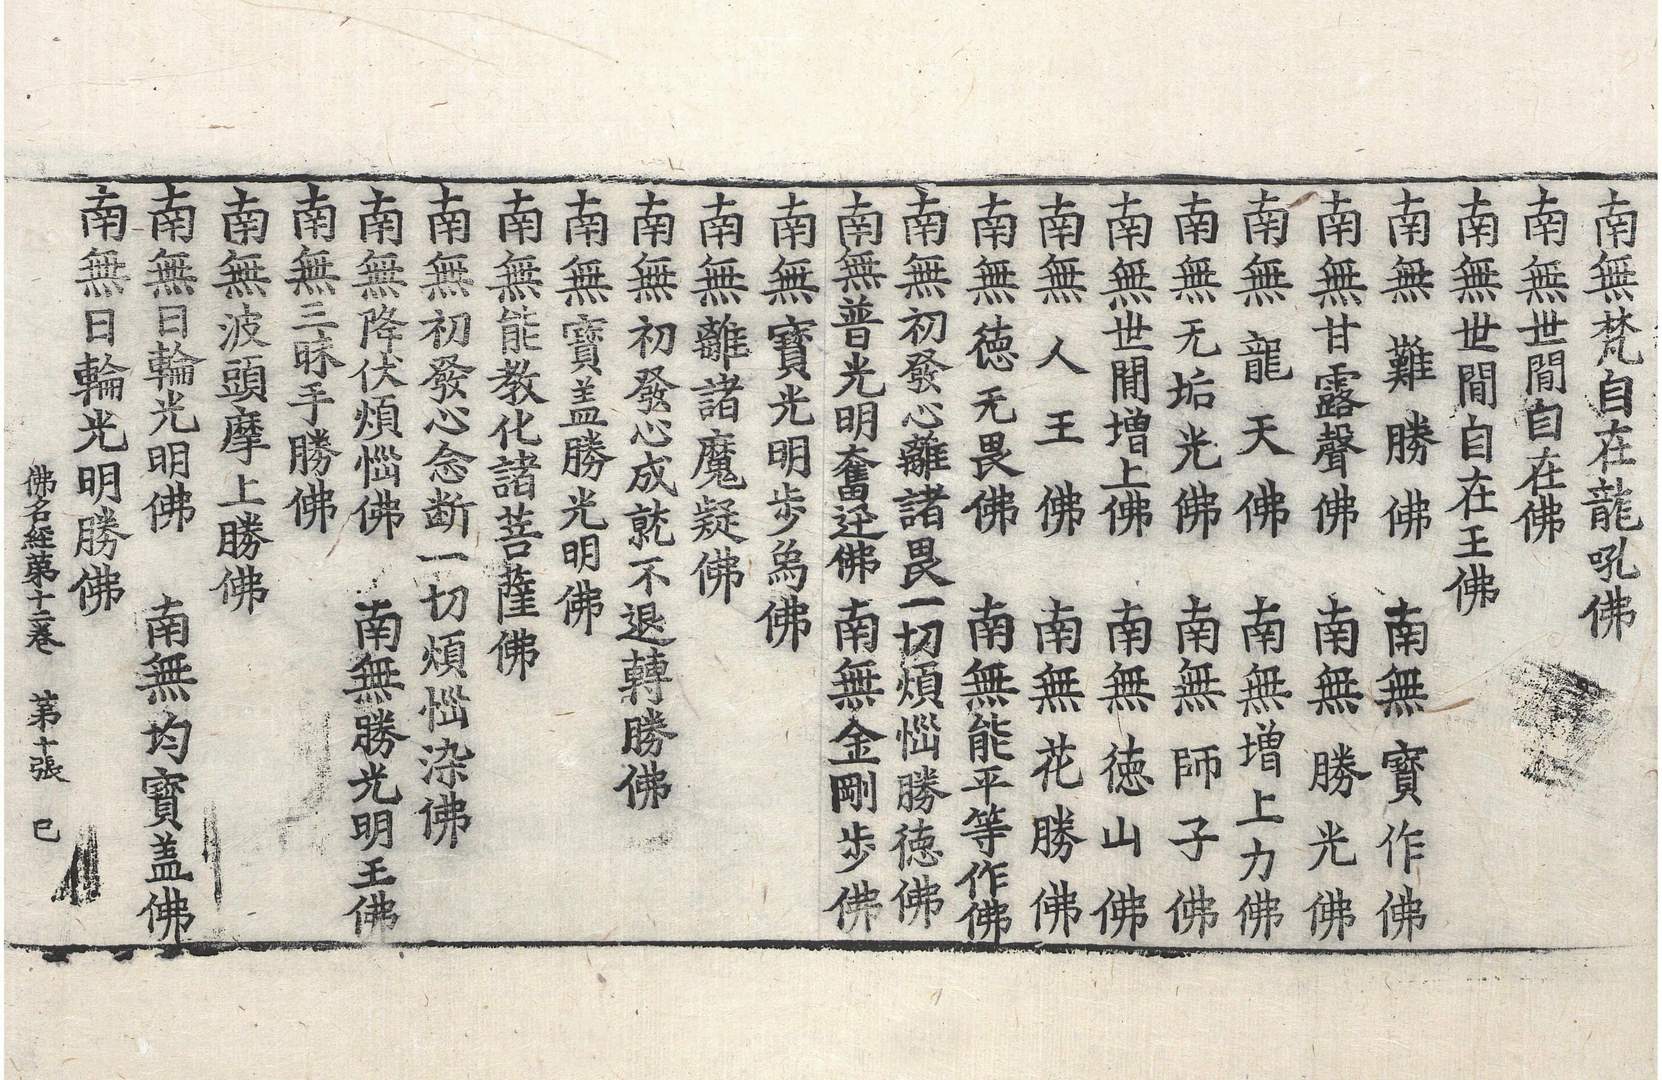 南無梵自在龍吼佛
南無世間自在佛
南無世間自在王佛
南無難勝佛 南無寶作佛
南無甘露聲佛 南無勝光佛
南無龍天佛 南無增上力佛
南無无垢光佛 南無師子佛
南無世間增上佛 南無德山佛
南無人王佛 南無花勝佛
南無德无畏佛 南無能平等作佛
南無初發心離諸畏一切煩惱勝德佛
南無普光明奮迅佛 南無金剛步佛
南無寶光明步爲佛
南無離諸魔疑佛
南無初發心成就不退轉勝佛
南無寶盖勝光明佛
南無能教化諸菩薩佛
南無初發心念断一切煩惱染佛
南無降伏煩惱佛 南無勝光明王佛
南無三昧手勝佛
南無波頭摩上勝佛
南無日輪光明佛 南無均寶盖佛
南無日輪光明勝佛
佛名經第十二卷 第十張 巳